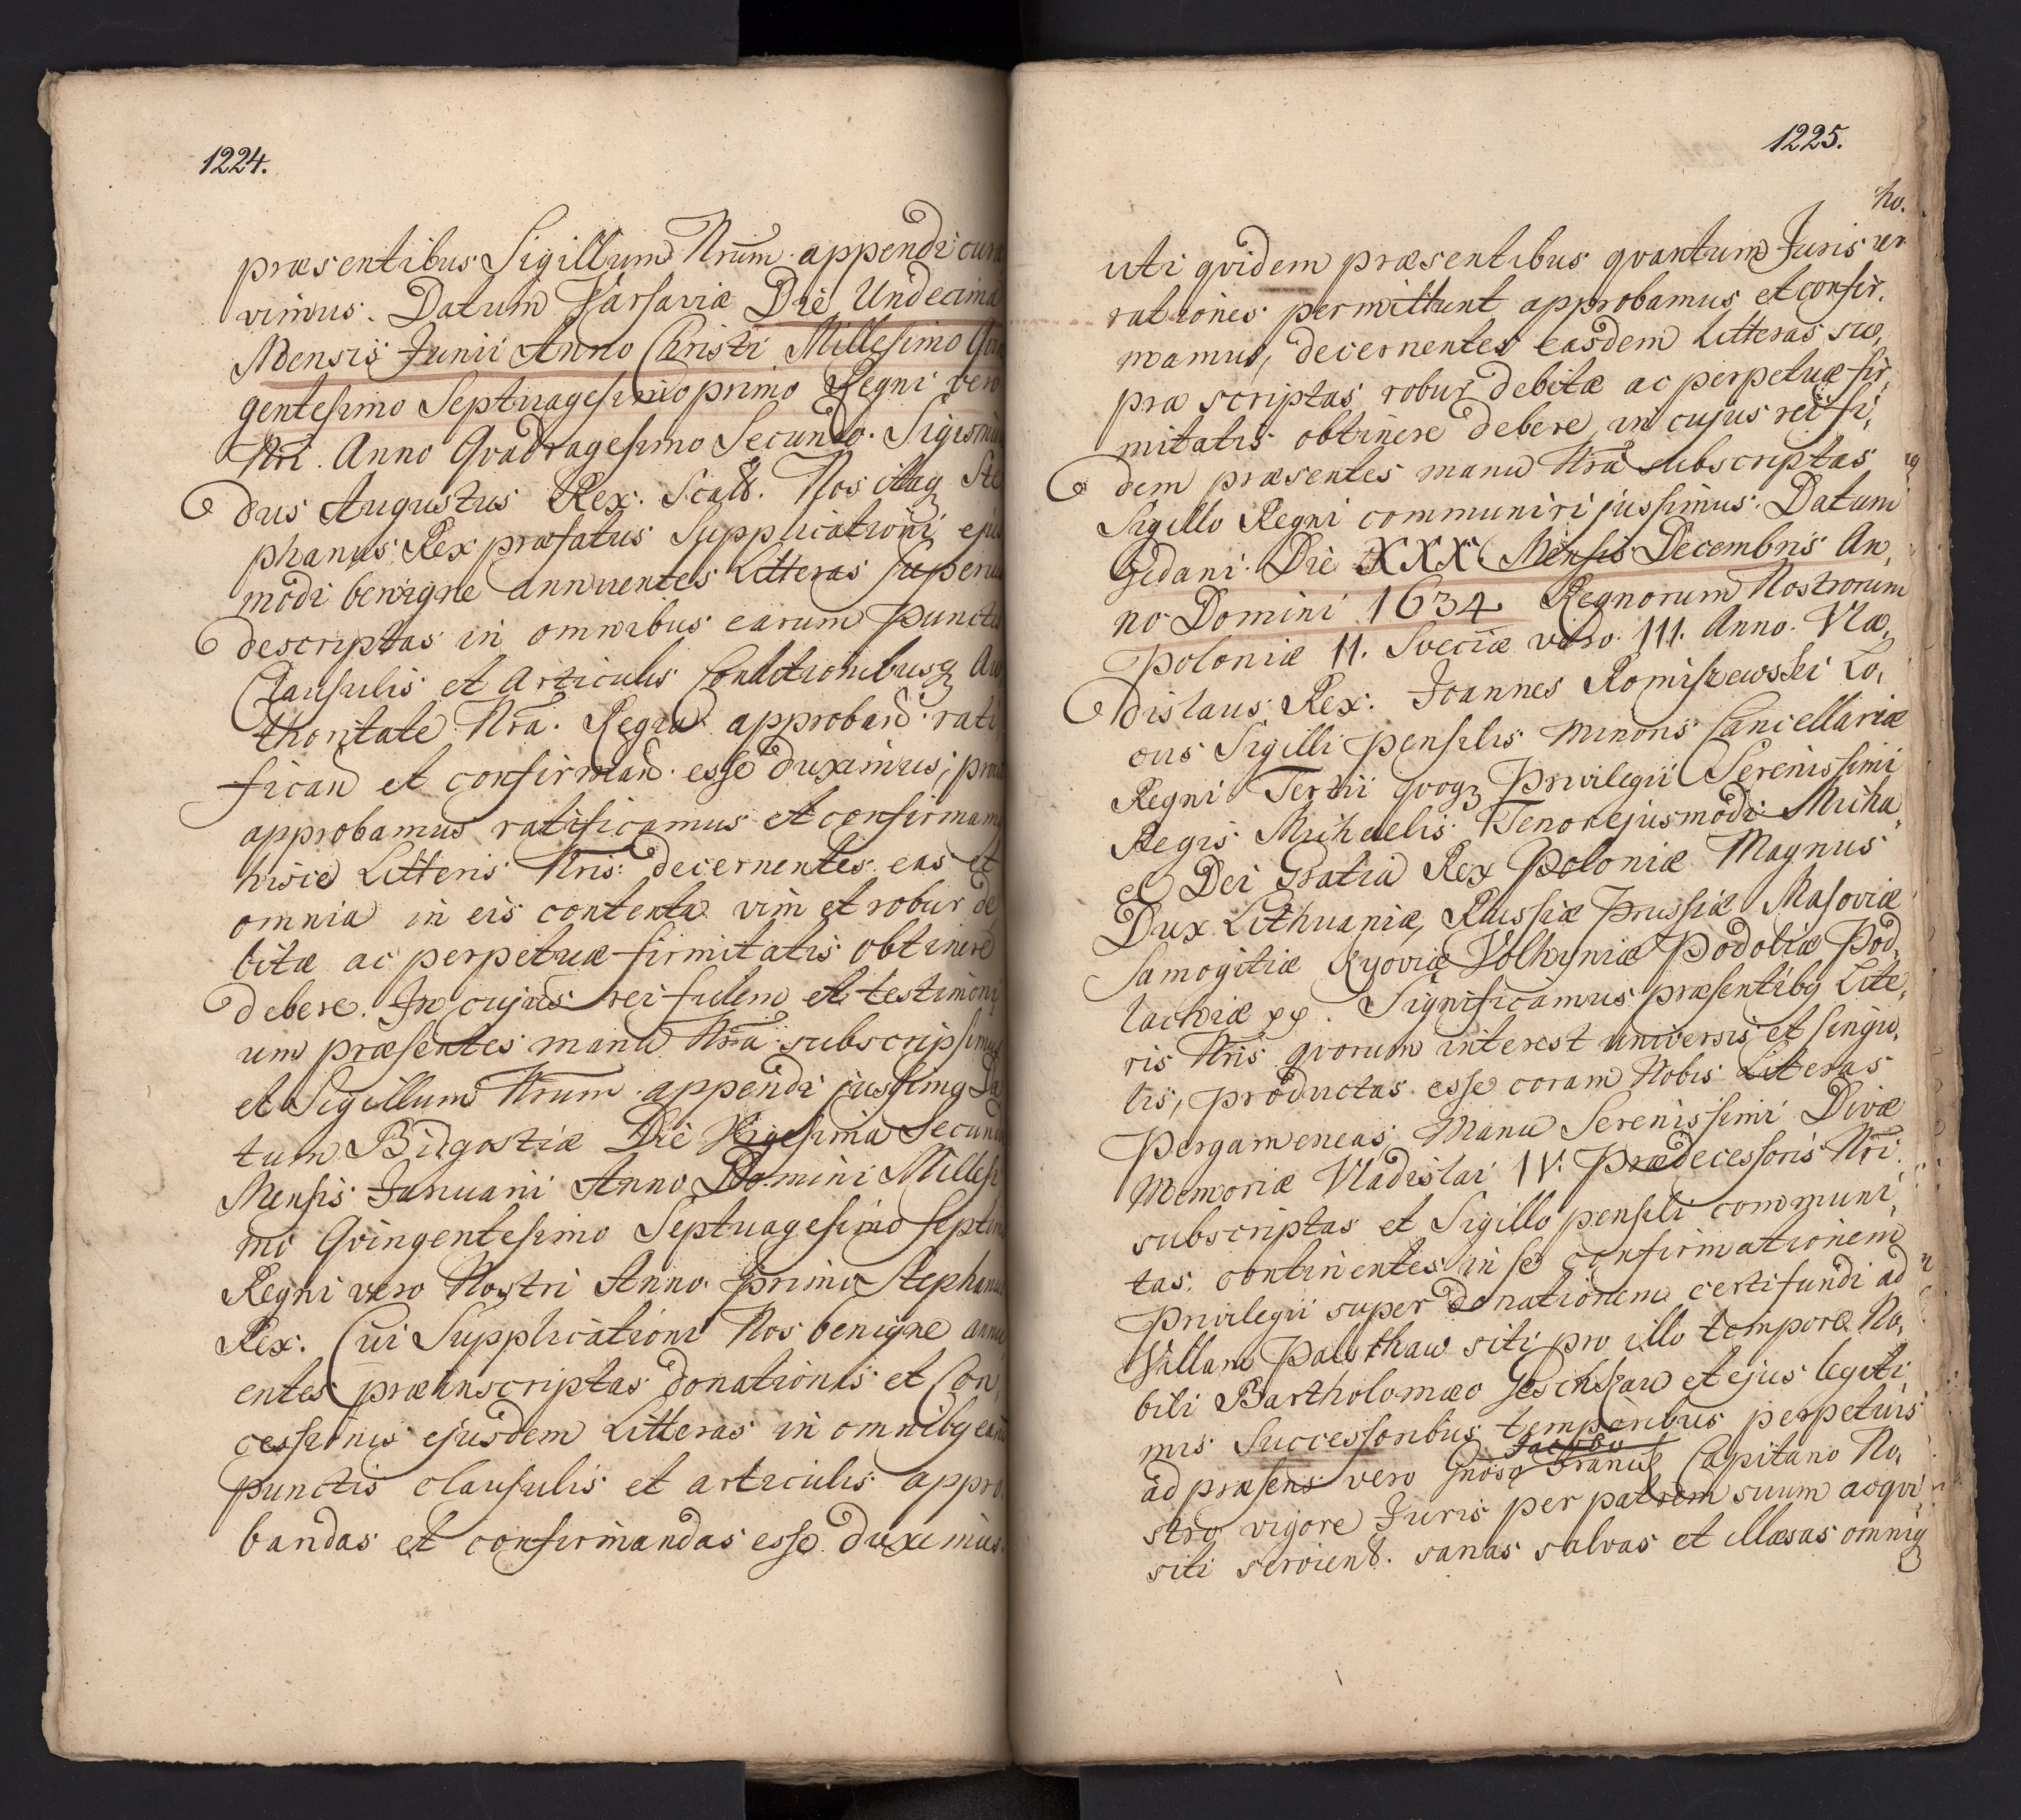 1224.
præsentibus Sigillum Nrum appendi cura
vimus. Datum Varsaviæ Die Undecima
Mensis Junii Anno Christi Millesimo Qvin
gentesimo Septuagesimo primo Regni vero
Nri Anno Qvadragesimo Secundo. Sigismun
dus Augustus Rex. Scałt. Nos itaq Ste
phanus Rex præfatus Supplicationi ejus
modi benigne annuentes Litteras superius
descriptas in omnibus earum Punctis
Clausulis et Articulis Conditionibusq Au
thoritate Nra Regia approband rati,
ficand et confirmand esse duximus, prout
approbamus ratificamus et confirmamq
hisce Litteris Nris decernentes eas et
omnia in eis contenta vim et robur de
bitæ ac perpetuæ firmitatis obtinere
debere. In cujus rei fidem et testimoni
um præsentes manu Nra subscripsimus
et Sigillum Nrum appendi jussimq Da
tum Bidgostiæ Die Vigesima Secunda
Mensis Januarii Anno Domini Millesi
mo Qvingentesimo Septuagesimo septimo
Regni vero Nostri Anno primo Stephanus
Rex. Cui Supplicationi Nos benigne annu
entes præinscriptas donationis et Con,
cessionis ejusdem Litteras in omnibq earum
punctis clausulis et articulis appro
bandas et confirmandas esse duximus.
1225.
no.
uti qvidem præsentibus qvantum Juris
rationes permittunt approbamus et confir,
mamus, decernentes easdem Litteras su,
pra scriptas robur debitæ ac perpetuæ fir,
mitatis obtinere debere, in cujus rei fi,
dem præsentes manu Nra subscriptas
Sigillo Regni communiri jussimus. Datum
Gedani Die XXX Mensis Decembris An,
no Domini 1634 Regnorum Nostrorum
Poloniæ 11. Sveciæ vero 111. Anno. Vla,
dislaus Rex. Joannes Romiszewski Lo,
cus Sigilli pensilis minoris Cancellariæ
Regni Tertii qvoqz Privilegii Serenissimi
Regis Michaelis Tenor ejusmodi Micha,
el Dei Gratia Rex Poloniæ Magnus
Dux Lithuaniæ, Russiæ Prussiæ Masoviæ
Samogitiæ Kyoviæ Volhyniæ Podoliæ Pod,
lachiæ Significamus præsentibq Lite,
ris Nris qvorum interest universis et singu,
lis, productas esse coram Nobis Literas
Pergameneas, Manu Serenissimi Divæ
Memoriæ Vladislai IV. Prædecessoris Nri
subscriptas et Sigillo pensili communi,
tas, continentes in se confirmationem
Privilegii super donationem certi fundi ad
Villam siti pro illo tempore No,
bili Bartholomæo et ejus legiti,
mis Successoribus temporibus perpetuis
Jacobo
ad præsens vero Gnoso Capitano No,
stro vigore Juris per patrem suum acqvi
siti servient. sanas salvas et illæsas omniq